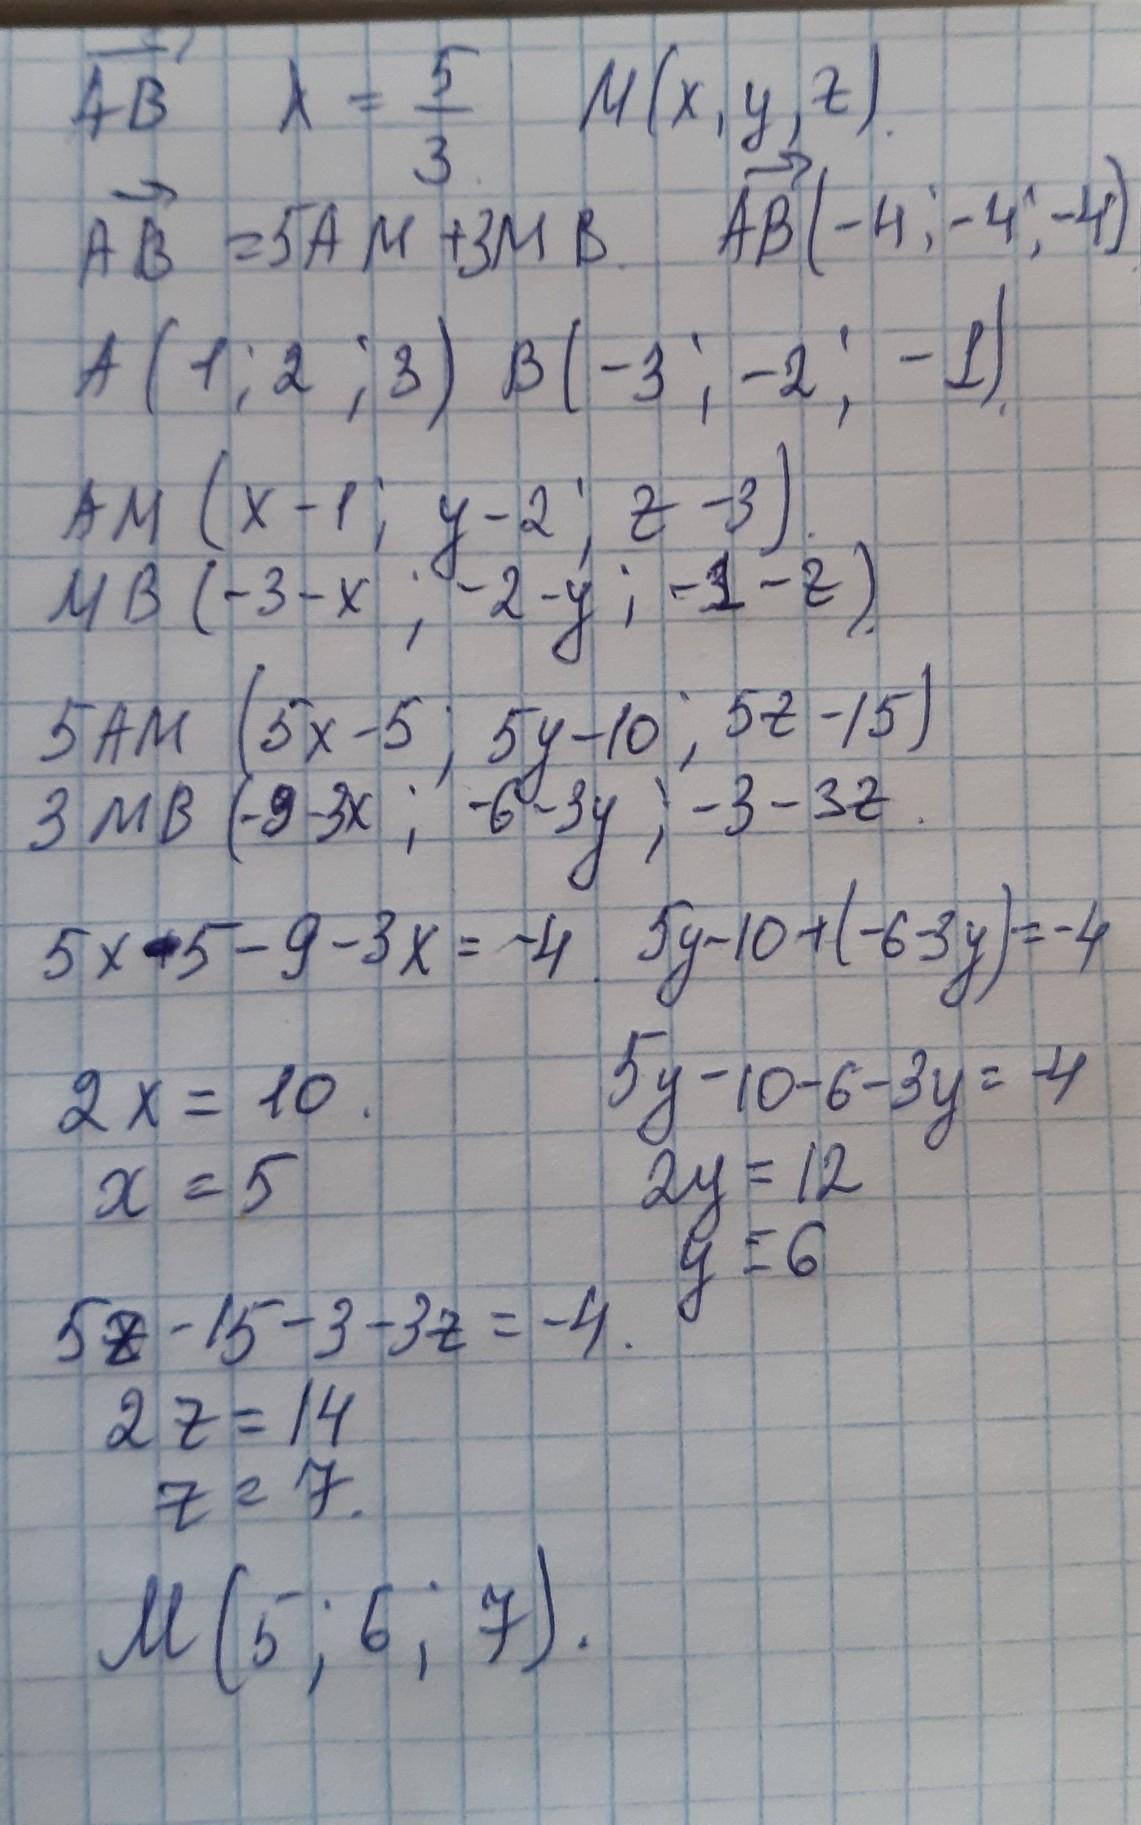 AB λ = 5/3 M(x, y, z).
AB = 5AM + 3MB. AB(-4; -4; -4)
A(1; 2; 3) B(-3; -2; -1).
AM (x-1; y-2; z-3).
MB (-3-x; -2-y; -1-z).
5AM (5x-5; 5y-10; 5z-15)
3MB (-9-3x; -6-3y; -3-3z.
5x-5-9-3x=-4. 5y-10+(-6-3y)=-4
2x=10. 5y-10-6-3y=-4
x=5 2y=12
y=6
5z-15-3-3z=-4.
2z=14
z=7.
M(5; 6; 7).